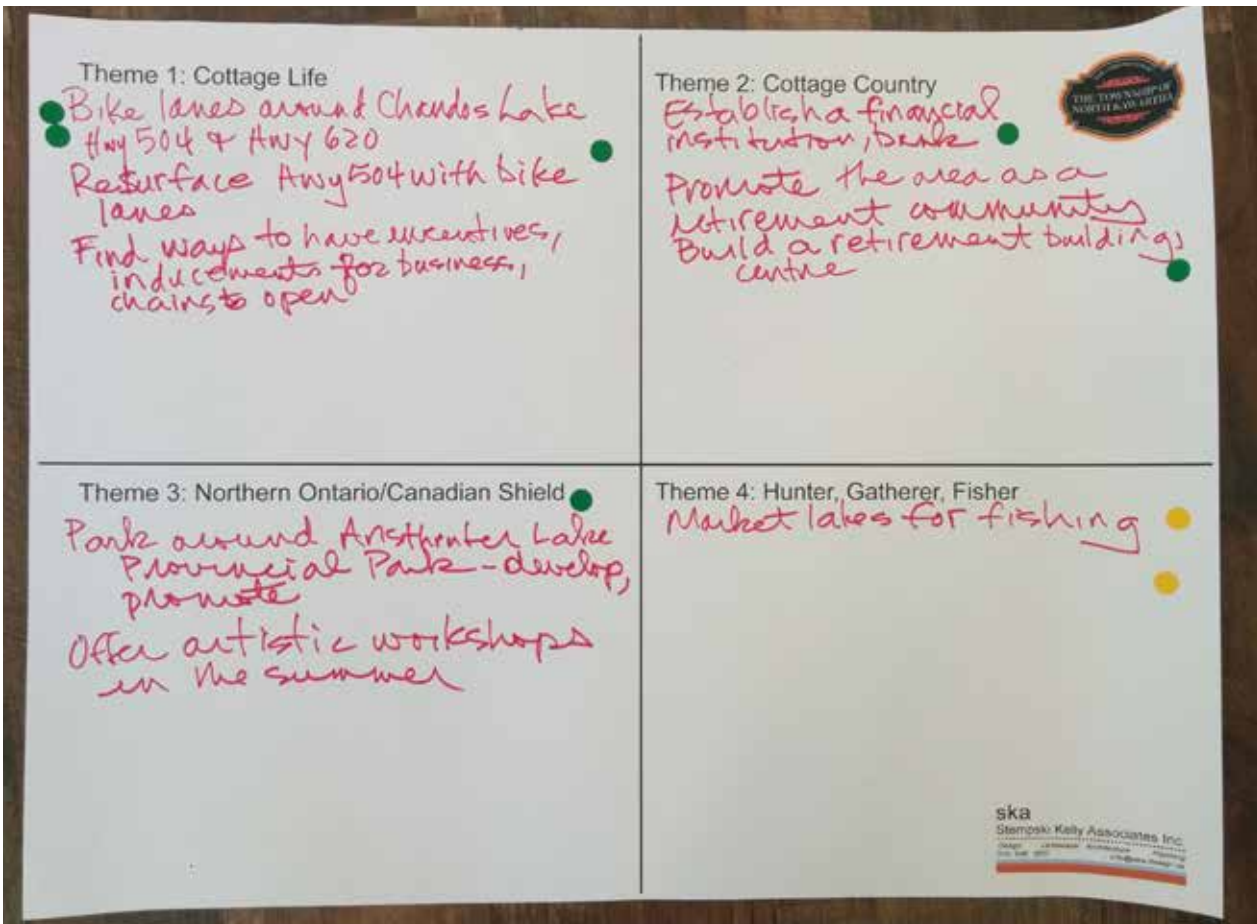 Theme 1: Cottage Life
Bike lanes around Chandos Lake
Hwy 504 & Hwy 620
Resurface Hwy 504 with bike
lanes
Find ways to have incentives,
inducements for business,
chains to open
Theme 2: Cottage Country
THE TOWNSHIP OF
NORTH KAWARTHA
Establish a financial
institution, bank
Promote the area as a
retirement community
Build a retirement buildings
centre
Theme 3: Northern Ontario/Canadian Shield
Park around Lake
Provincial Park - develop,
promote
Offer artistic workshops
in the summer
Theme 4: Hunter, Gatherer, Fisher
Market lakes for fishing
ska
Stempski Kelly Associates Inc.